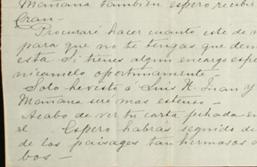 Mañana tambien espero recibir
Gran-
Procuraré hacer cuanto este de m
para que no te tengas que dem
esta Si tienes algun encargo espe
nicamelo oportunamente
Solo he visto á Luis H Juan y
Mañana sere mas estenso -
Acabo de ver tu carta fechada en
el Espero habras seguido de
de los paisages tan hermosos d
bos -